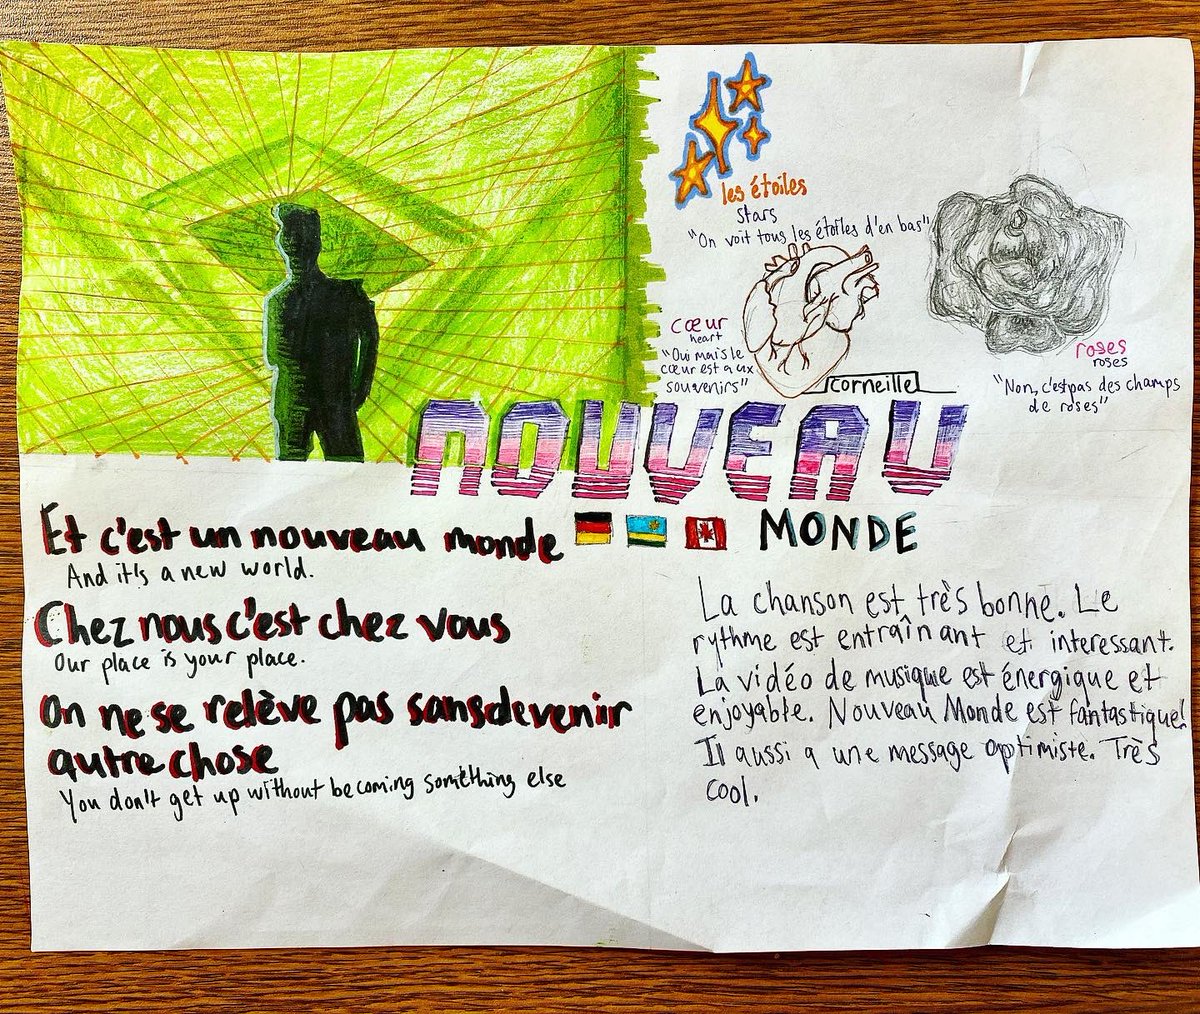 les étoiles
stars
"On voit tous les étoiles d'en bas"
cœur
heart
"Oui mais le
cœur est aux
souvenirs"
roses
roses
"Non, c'est pas des champs
de roses"
corneille
NOUVEAU
MONDE
Et c'est un nouveau monde
And it's a new world.
Chez nous c'est chez vous
Our place is your place.
On ne se relève pas sans devenir
autre chose
You don't get up without becoming something else
La chanson est très bonne. Le
rythme est entraînant et interessant.
La vidéo de musique est énergique et
enjoyable. Nouveau Monde est fantastique!
Il aussi a une message optimiste. Très
cool.